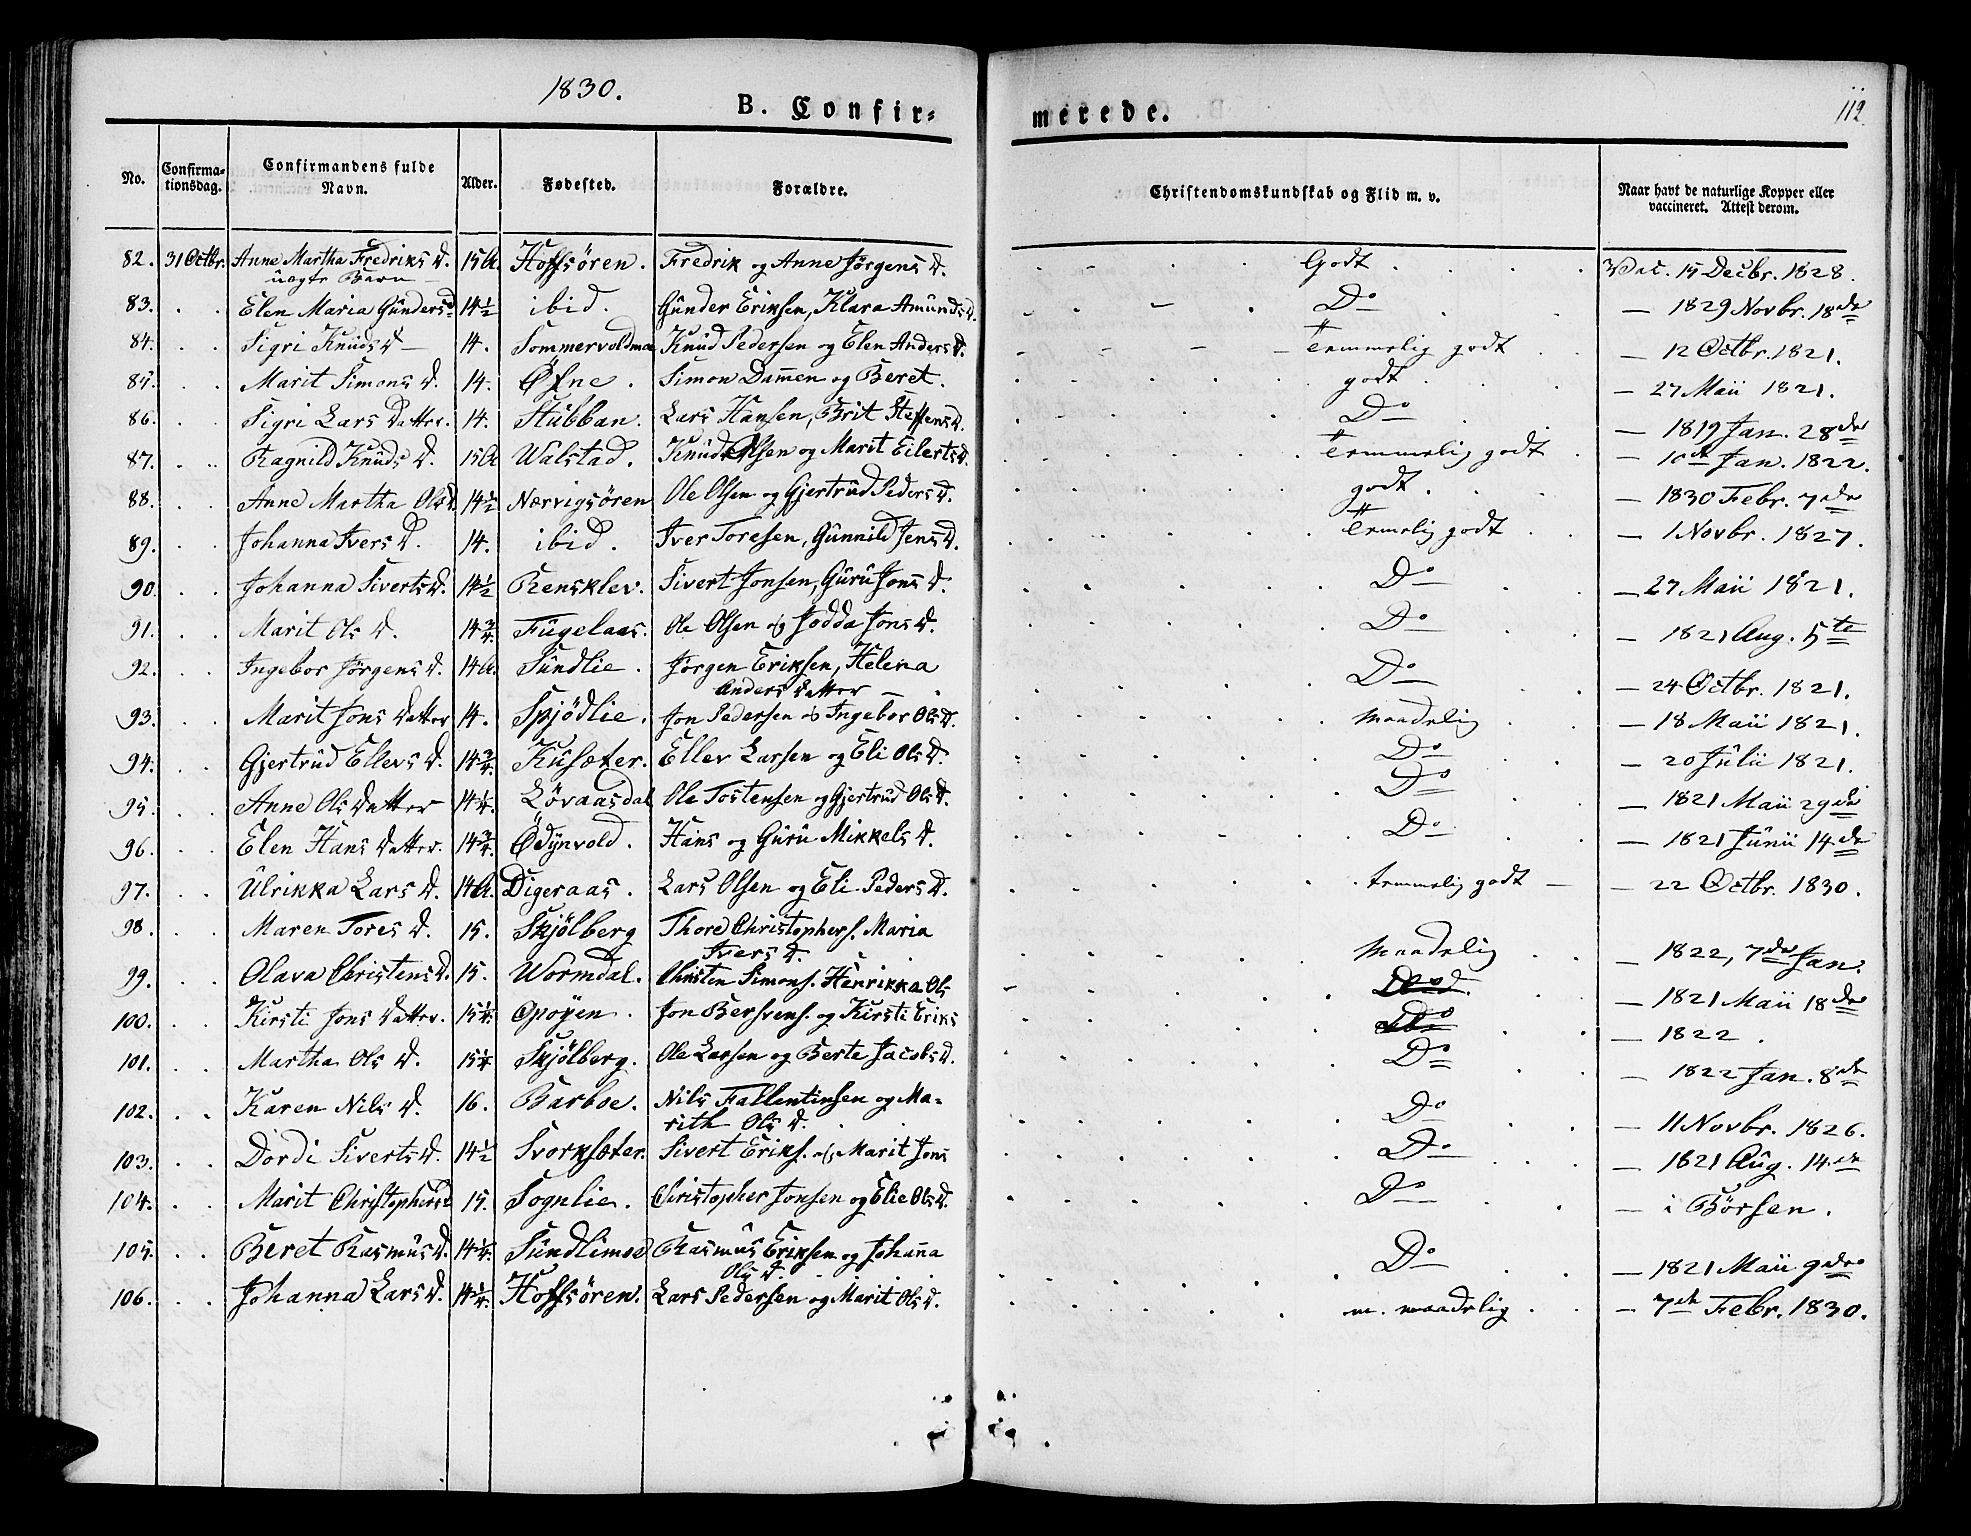 1830.
B. Confir= merede.
112
No. Confirma=tionsdag. Confirmandens fulde Navn. Alder. Fødested. Forældre. Christendomskundskab og Flid m. v. Naar havt de naturlige Kopper eller vaccineret. Attest derom.
82. 31 Octbr. Anne Martha Fredriks D. 15 A. Hoffsören. Fredrik og Anne Jörgens D. Godt Vac. 15 Decbr. 1828.
uægte Barn —
83. Elen Maria Gunders D 14½ ibid. Gunder Eriksen, Klara Amunds D. Do — 1829 Novbr. 18de
84. Sigri Knuds D — 14. Sommervoldmoe Knud Pedersen og Elen Anders D. Temmelig godt — 12 Octbr. 1821.
85. Marit Simons D. 14. Øfne. Simon Dammen og Beret. godt — 27 Maii 1821.
86. Sigri Lars Datter. 14. Stubban. Lars Hansen, Brit Steffens D. Do — 1819 Jan. 28de
87. Ragnild Knuds D. 15 A Walstad. Knud Olsen og Marit Eilerts D. Temmelig godt — 10de Jan. 1822.
88. Anne Martha Ols D. 14½ Nærvigsören Ole Olsen og Gjertrud Peders D. godt — 1830 Febr. 7de
89. Johanna Ivers D. 14. ibid. Iver Toresen, Gunnild Jens D. Temelig godt — 1 Novbr. 1827.
90. Johanna Siverts D. 14½ Rensklev. Sivert Jonsen, Guru Jons D. Do — 27 Maii 1821.
91. Marit Ols D. 14¾. Fugelaas. Ole Olsen og Jodda Jons D. Do — 1821 Aug. 5te
92. Ingebor Jørgens D. 14 A. Sundlie. Jørgen Eriksen, Helena Do — 24 Octbr. 1821.
Anders Datter —
93. Marit Jons Datter 14. Spjödlie. Jon Pedersen og Ingebor Ols D. maadelig — 18 Maii 1821.
94. Gjertrud Ellevs D. 14¾. Kusæter. Ellev Larsen og Eli Ols D. Do — 20 Julii 1821.
95. Anne Ols Datter 14¼. Lövaasdal Ole Tostensen og Gjertrud Ols D. Do — 1821 Maii 29de
96. Elen Hans Datter. 14¾. Ödynvold. Hans og Guru Mikkels D. Do — 1821 Junii 14de
97. Ulrikka Lars D. 14 A. Digeraas. Lars Olsen og Eli Peders D. temmelig godt — — 22 Octbr. 1830.
98. Maren Tores D. 15. Skjölberg Thore Christophers. Maria maadelig — 1822, 7de Jan.
Ivers D.
99. Olava Christens D. 15. Wormdal. Christen Simons. Henrikka Ols — 1821 Maii 18de
100. Kirsti Jons Datter. 15¼. Opöyen. Jon Bersvens. og Kirsti Eriks — 1822.
101. Martha Ols D. 15¼ Skjölberg. Ole Larsen og Berte Jacobs D. Do — 1822 Jan. 8de
102. Karen Nils D. 16. Barboe. Nils Fallentinsen og Ma= Do — 11 Novbr. 1826.
rith Ols D.
103. Dordi Siverts D. 14½ Svorksæter. Sivert Eriks. og Marit Jons Do — 1821 Aug. 14de
104. Marit Christophers D 15. Sognlie. Christopher Jonsen og Elie Ols D. Do — i Börsen.
105. Beret Rasmus D. 14¼. Sundlimoe Rasmus Eriksen og Johanna Do — 1821 Maii 9de
Ols D.
106. Johanna Lars D. 14¼. Hoffsören. Lars Pedersen og Marit Ols D. m. maadelig — 7de Febr. 1830.